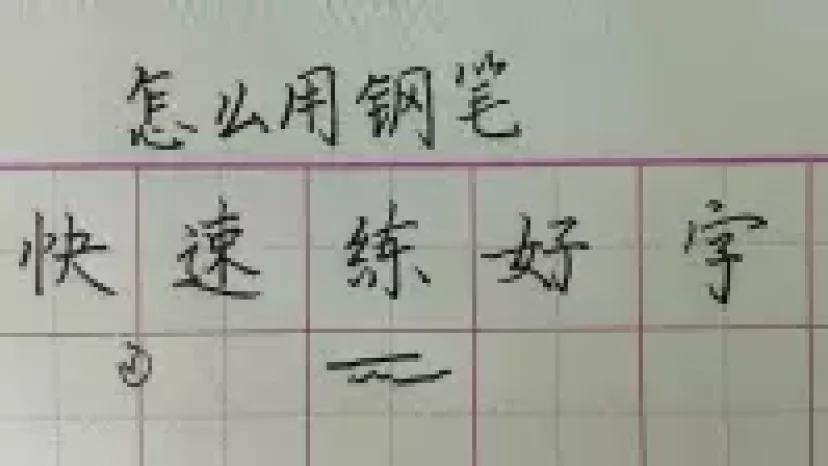 怎么用钢笔
快速练好字